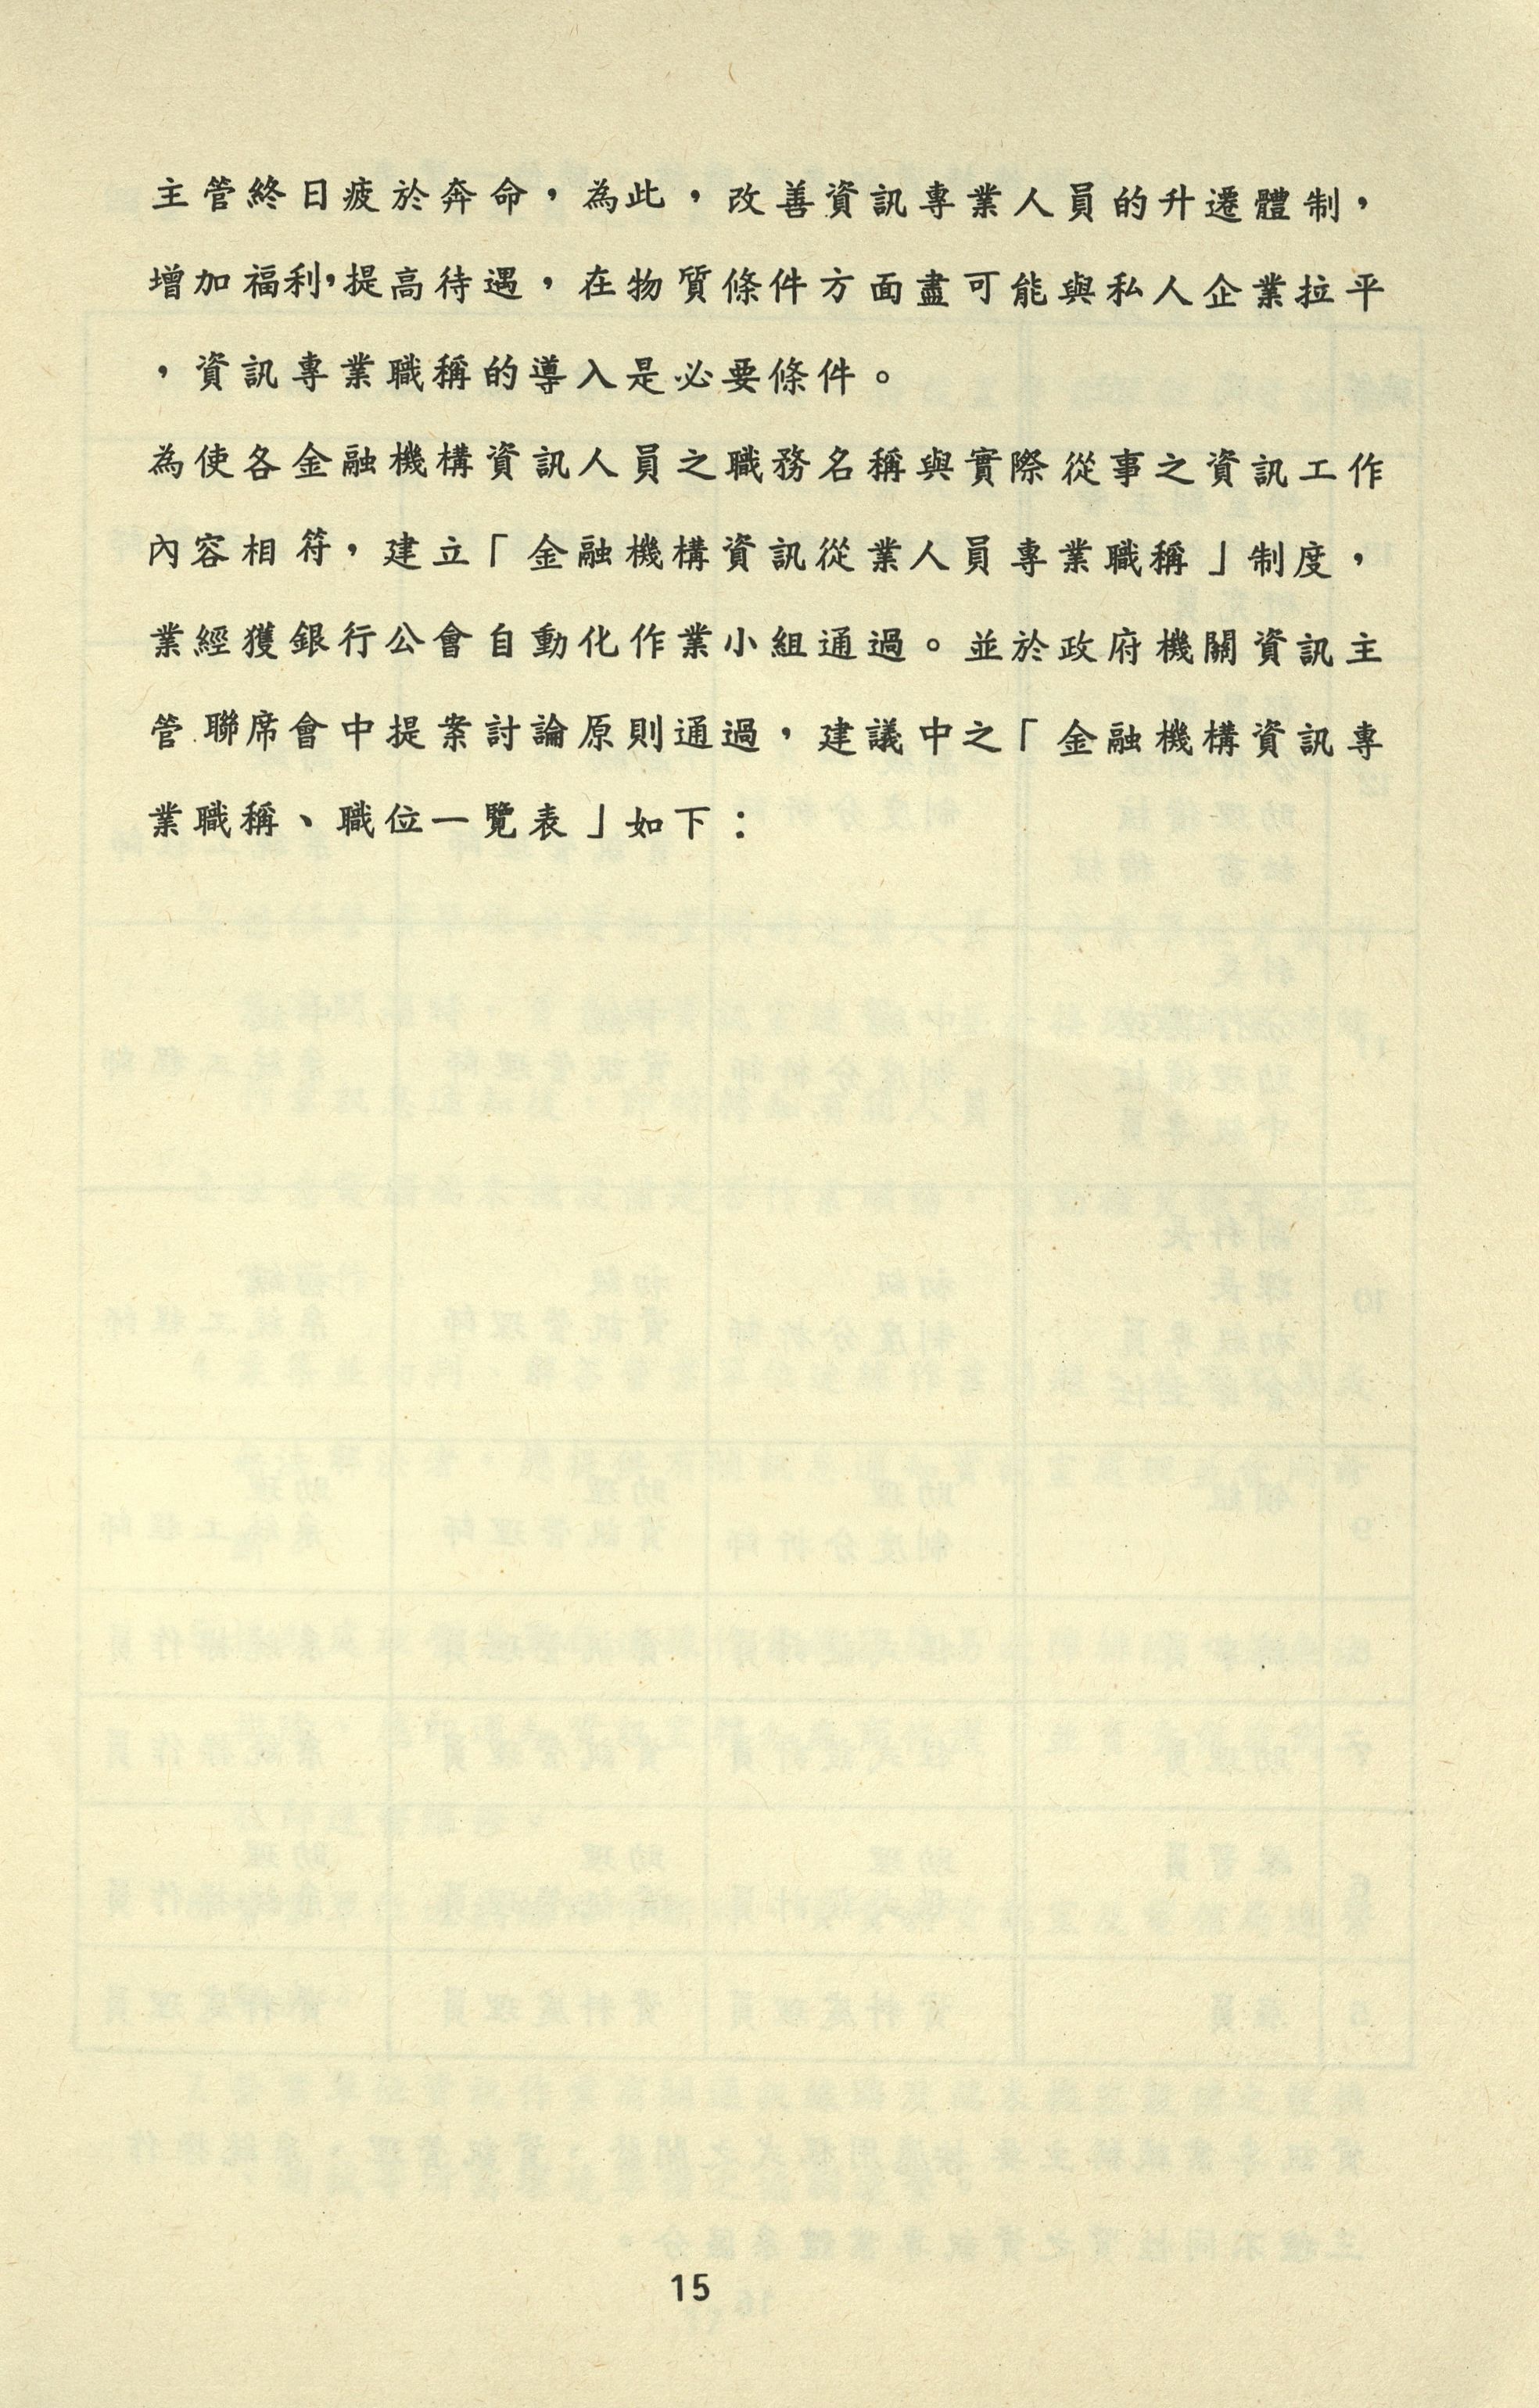 主管終日疲於奔命，為此，改善資訊專業人員的升遷體制，
增加福利，提高待遇，在物質條件方面盡可能與私人企業拉平
，資訊專業職稱的導入是必要條件。
為使各金融機構資訊人員之職務名稱與實際從事之資訊工作
內容相符，建立「金融機構資訊從業人員專業職稱」制度，
業經獲銀行公會自動化作業小組通過。並於政府機關資訊主
管聯席會中提案討論原則通過，建議中之「金融機構資訊專
業職稱、職位一覽表」如下：
15